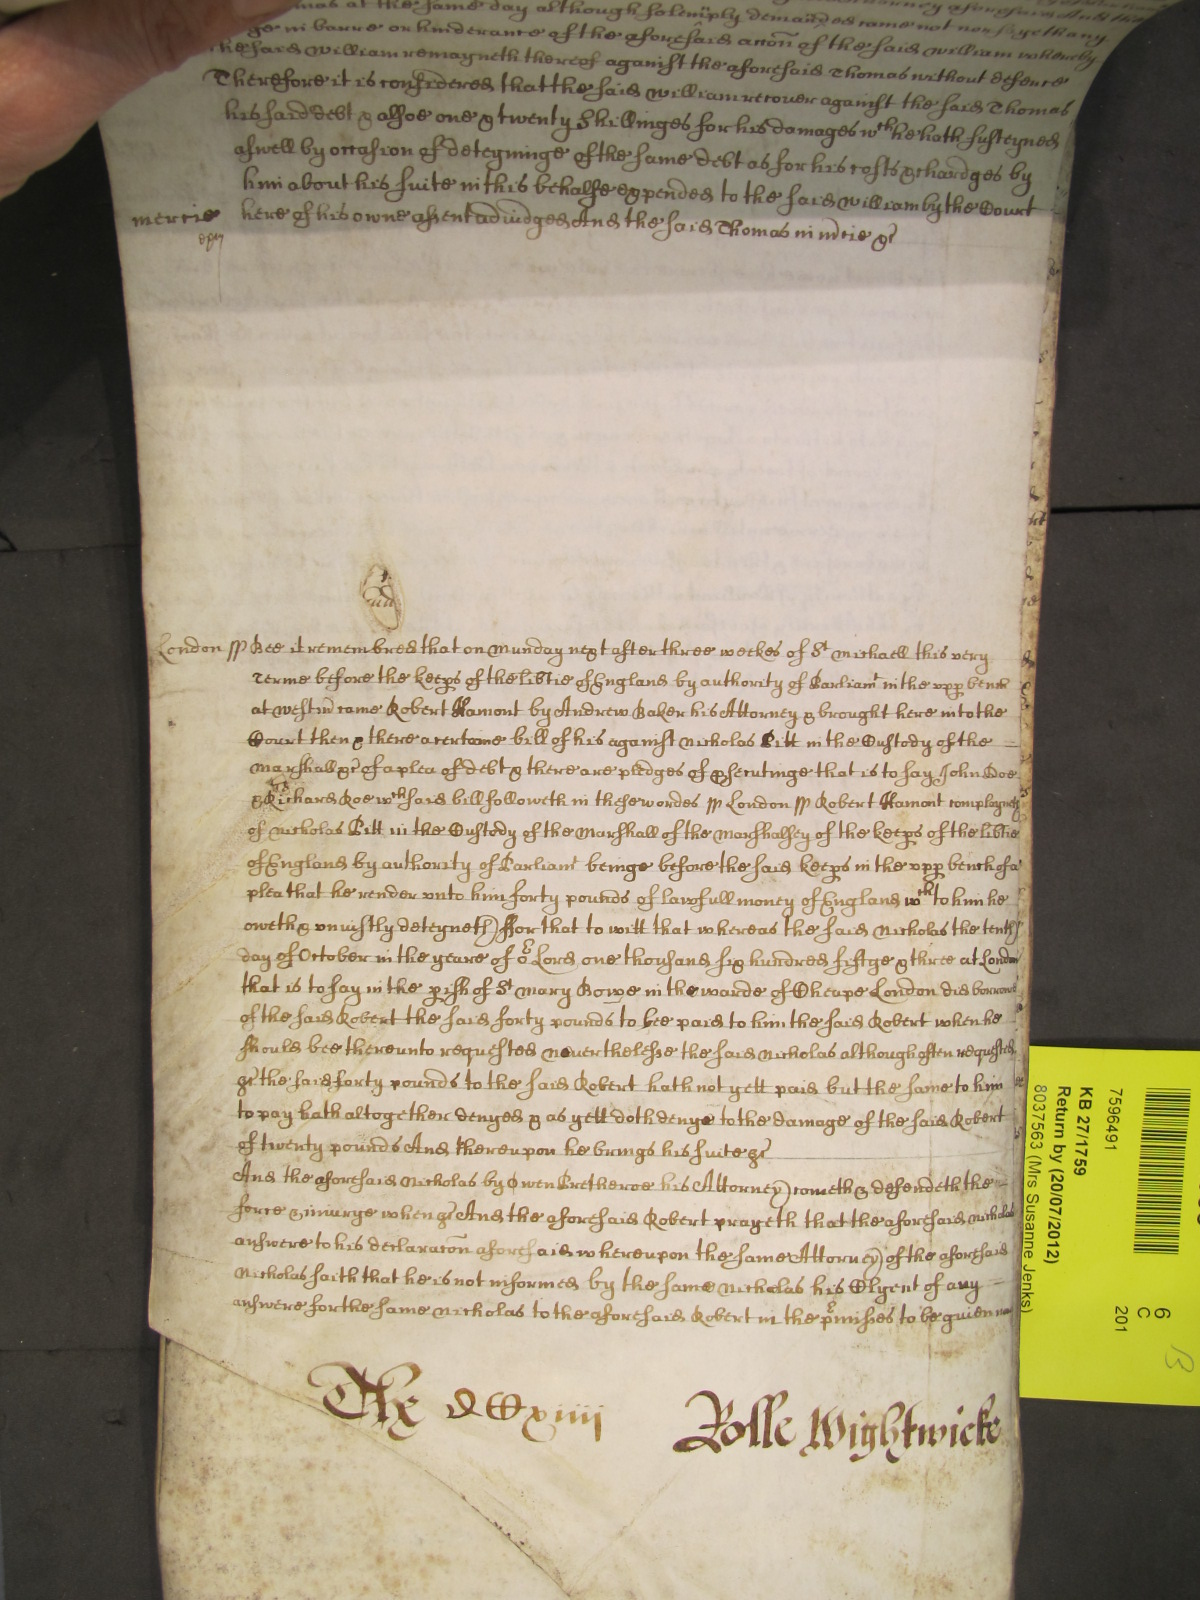 mas at the same day although solemply demanded came not nor sayethany
ge in barre or hinderance of the aforesaid accon of the said William whereby
the said William remayneth thereof against the aforesaid Thomas without defence
Therefore it is considered that the said William recover against the said Thomas
his said debt & alsoe one & twenty Shillinges for his damages wch he hath susteyned
aswell by occasion of deteyninge of the same debt as for his costs & chardges by
him about his suite in this behalfe expended to the said William by the Court
mercie here of his owne assent adiudged And the said Thomas in mcie &c
London ss Bee it remembred that on Munday next after three weekes of St Michaell this very
Terme before the keeps of the libtie of England by authority of Parliamt in the vpp bench
at Westm came Robert Hamont by Andrew Baker his Attorney & brought here into the
Court then & there a certaine bill of his against Nicholas Pitt in the Custody of the
Marshall &c of a plea of debt & there are pledges of psecutinge that is to say John Doe
& Richard Roe wch said bill followeth in these wordes ss London ss Robert Hamont complayneth
of Nicholas Pitt in the Custody of the Marshall of the Marshalsey of the keeps of the libtie
of England by authority of Parliamt beinge before the said keeps in the vpp bench of a
plea that he render vnto him forty pounds of lawfull money of England wch to him he
oweth & vniustly deteyneth For that to witt that whereas the said Nicholas the tenth
day of October in the yeare of or Lord one thousand six hundred fiftye & three at London
that is to say in the pish of St Mary Bowe in the warde of Cheape London did borrowe
of the said Robert the said forty pounds to bee paid to him the said Robert when he
should bee thereunto requested neverthelesse the said Nicholas although often requested
&c the said forty pounds to the said Robert hath not yett paid but the same to him
to pay hath altogether denyed & as yett doth denye to the damage of the said Robert
of twenty pounds And thereupon he brings his suite &c
And the aforesaid Nicholas by Owen Bretheroe his Attorney cometh & defendeth the
force & iniurye when &c And the aforesaid Robert prayeth that the aforesaid Nicholas
answere to his declaracon aforesaid whereupon the same Attorney of the aforesaid
Nicholas saith that he is not informed by the same Nicholas his Clyent of any
answere for the same Nicholas to the aforesaid Robert in the pmisses to be giuen
Rolle Wightwicke
7596491
KB 27/1759
Return by (20/07/2012)
8037563 (Mrs Susanne Jenks)
6
C
201